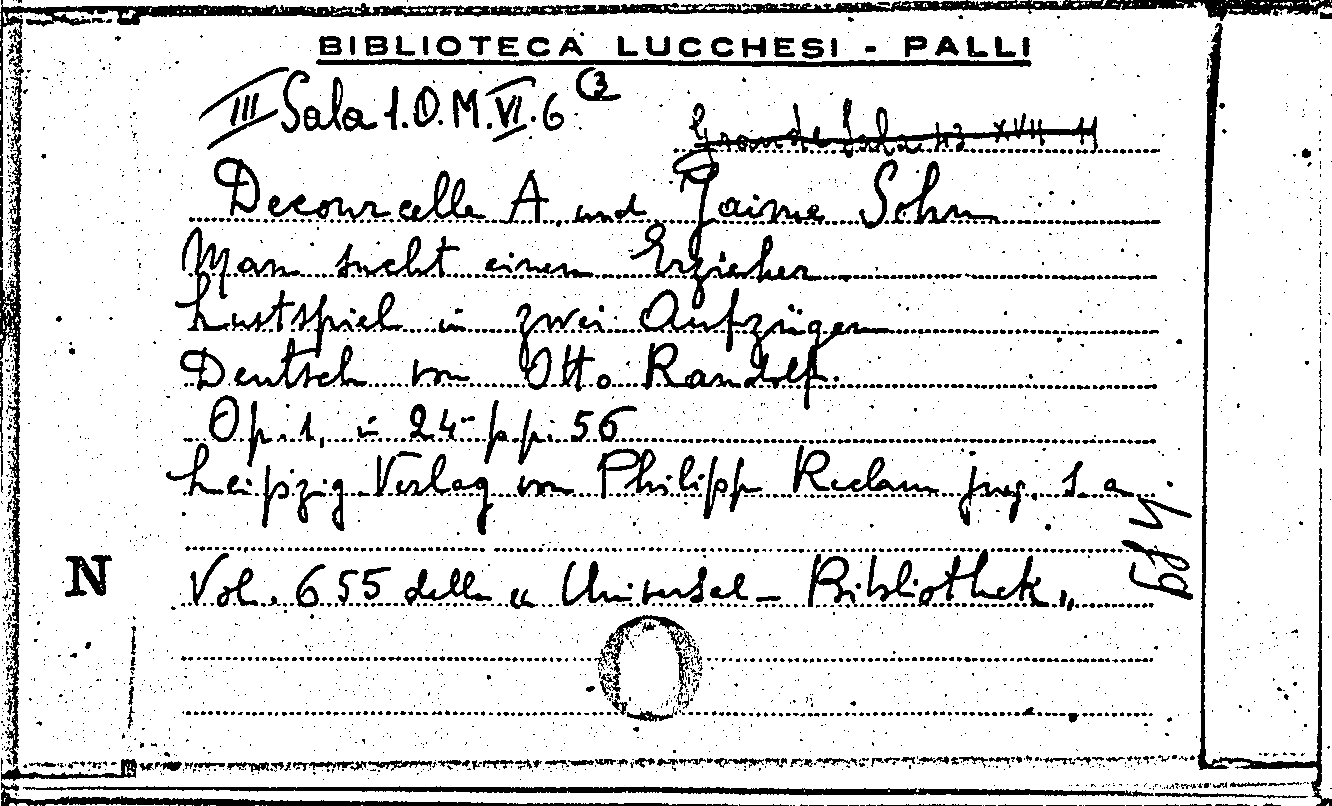 BIBLIOTECA LUCCHESI - PALLI
III Sala 1.O.M.VI.6 (3
Grande Sala 43 XVII 11
Decourcelle A und Jaime Sohn
Man sucht einen Erzieher
Lustspiel in zwei Aufzügen
Deutsch von Otto Randolf.
Op. 1, in 24° pp. 56
Leipzig Verlag von Philipp Reclam jung. s. a.
N
Vol. 655 della „ Universal - Bibliothek „